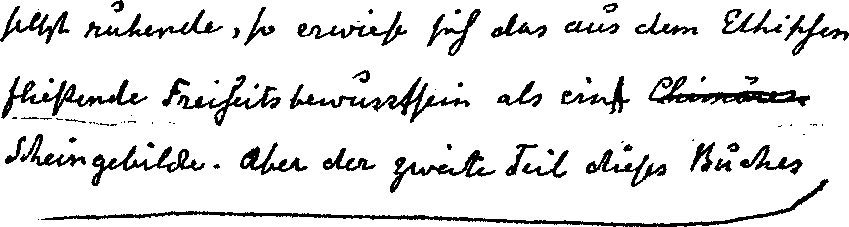 selbst ruhende, so erwiese sich das aus dem Ethischen
fließende Freiheitsbewusstsein als ein Chimären
Scheingebilde. Aber der zweite Teil dieses Buches